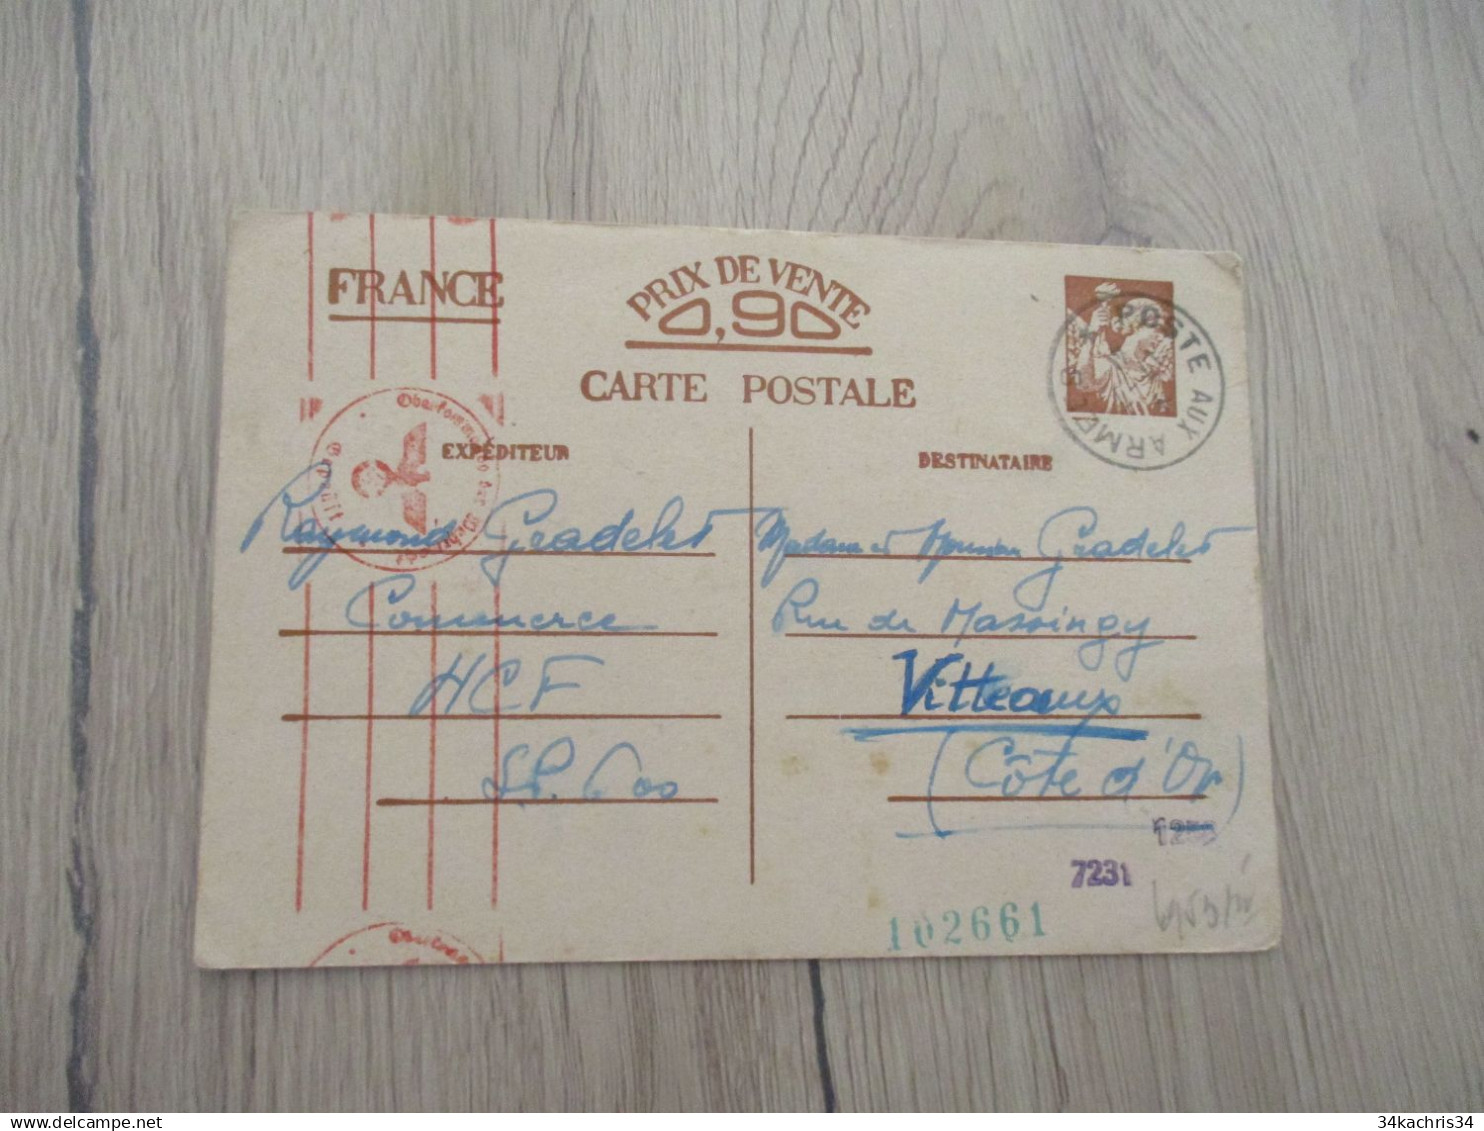 FRANCE
PRIX DE VENTE
0,90
CARTE POSTALE
POSTE AUX ARMÉES
EXPÉDITEUR
DESTINATAIRE
Oberkommando der Wehrmacht
Raymond Gradelet
Commerce
HCF
S.P. 600
Madame et Monsieur Gradelet
Rue de Massingy
Vitteaux
(Côte d'Or)
7231
102661
34kachris34